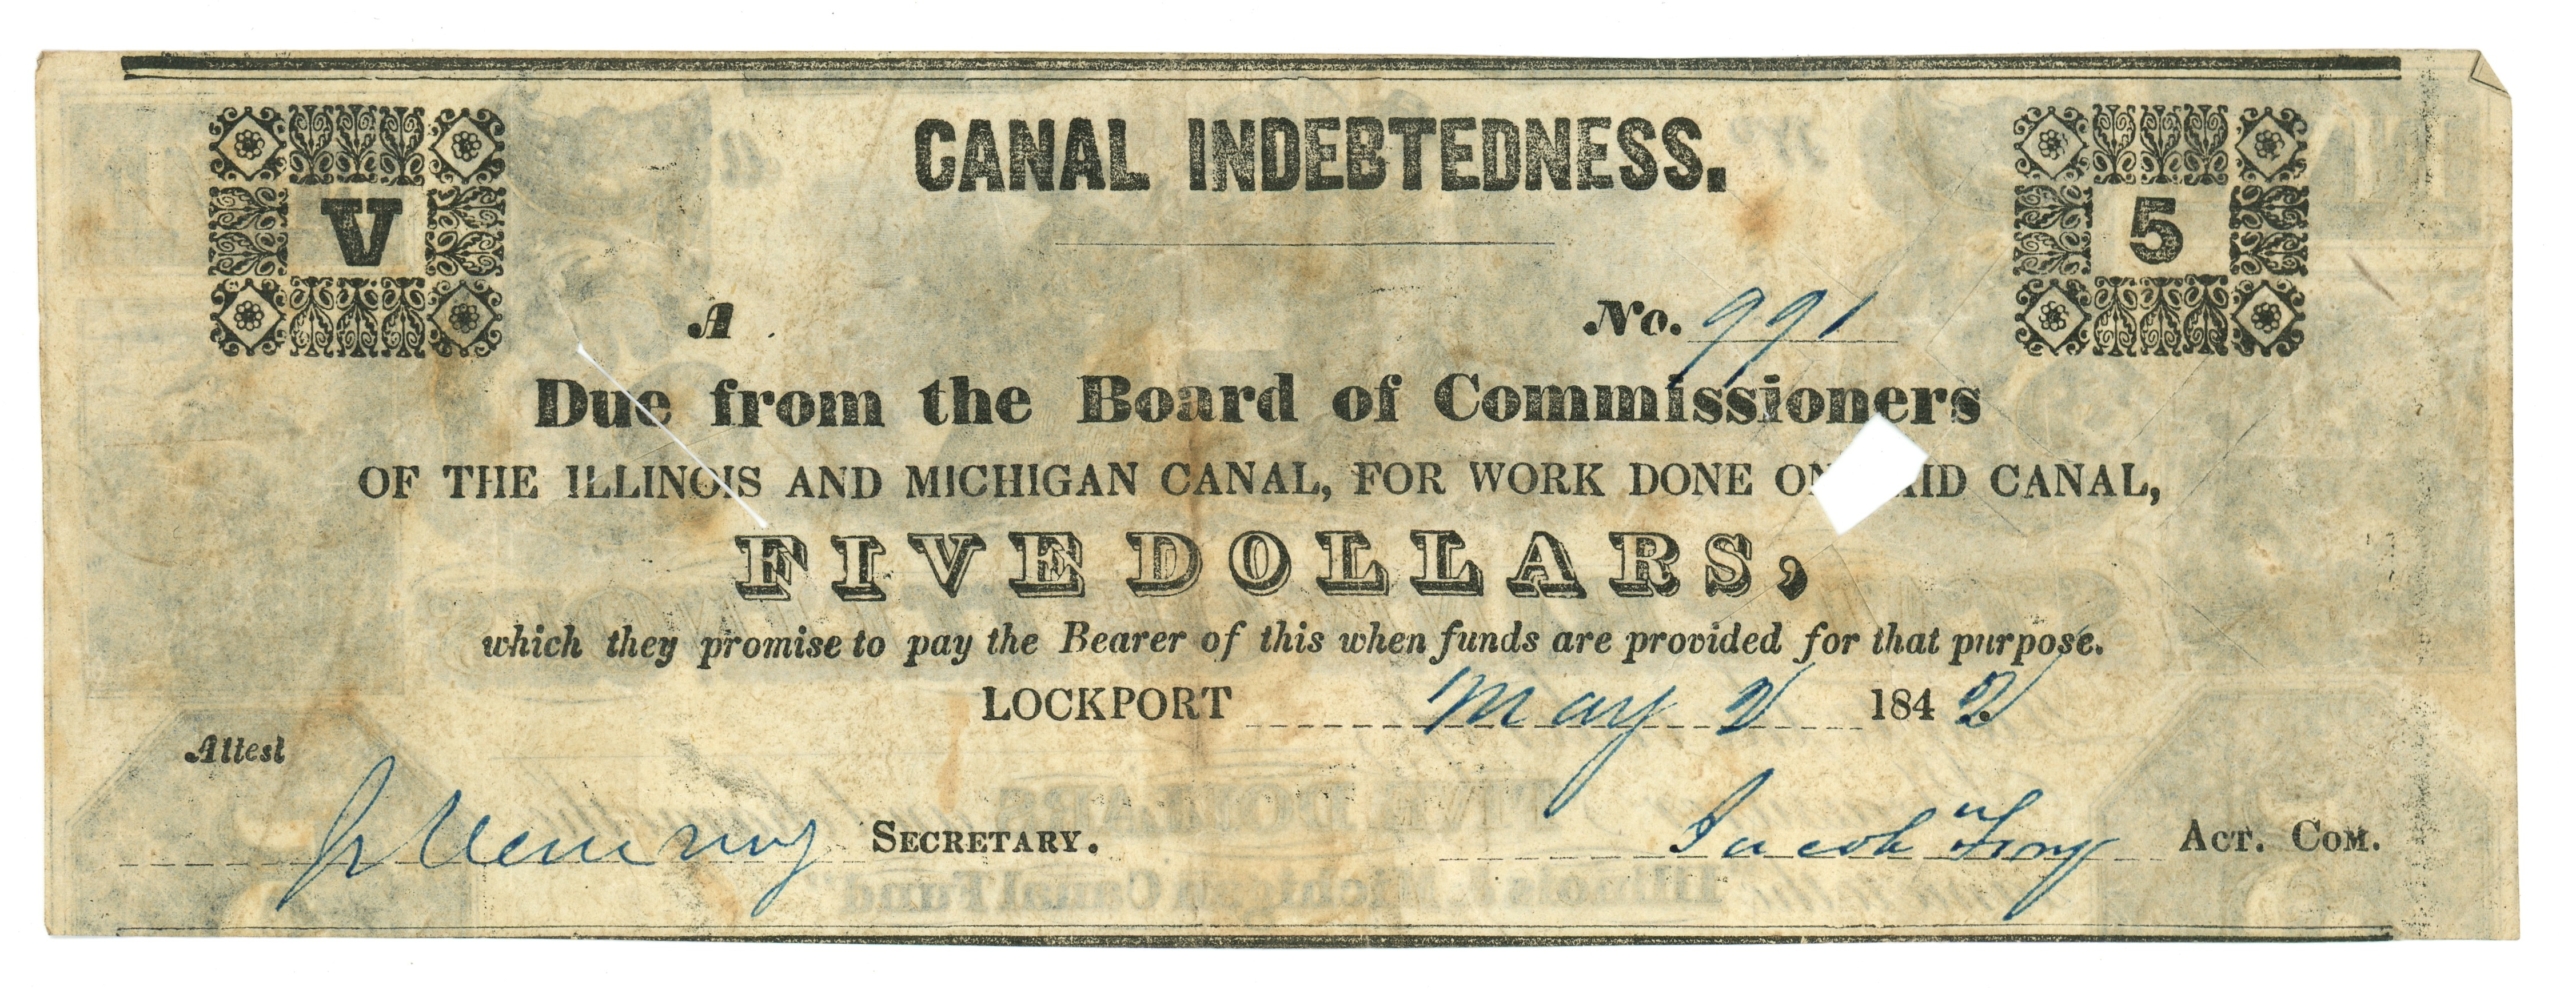 CANAL INDEBTEDNESS.
V
5
A
No. 991
Due from the Board of Commissioners
OF THE ILLINOIS AND MICHIGAN CANAL, FOR WORK DONE ON AID CANAL,
FIVE DOLLARS,
which they promise to pay the Bearer of this when funds are provided for that purpose.
LOCKPORT May 2 1842
Attest
SECRETARY.
Jacob Fry ACT. COM.
FIVE DOLLARS
Illinois & Michigan Canal Fund